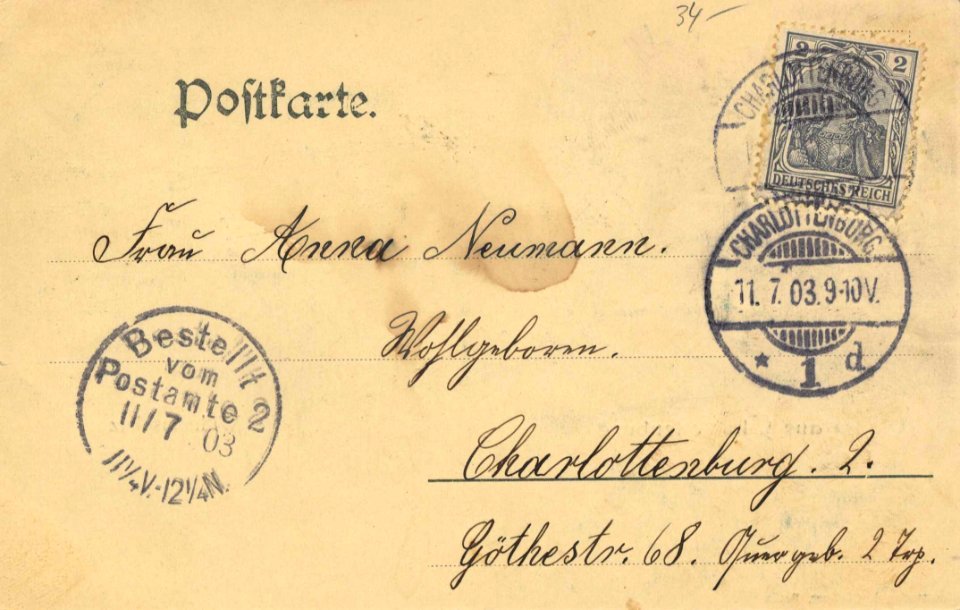 34-
Postkarte.
2 2
DEUTSCHES REICH
CHARLOTTENBURG
CHARLOTTENBURG
11. 7. 03. 9-10V.
* 1 d
Frau Anna Neumann.
Wohlgeboren.
Bestellt
vom
Postamte 2
11/7 03
11¼V.-12¼N.
Charlottenburg. 2.
Göthestr. 68. Quergeb. 2 Trp.